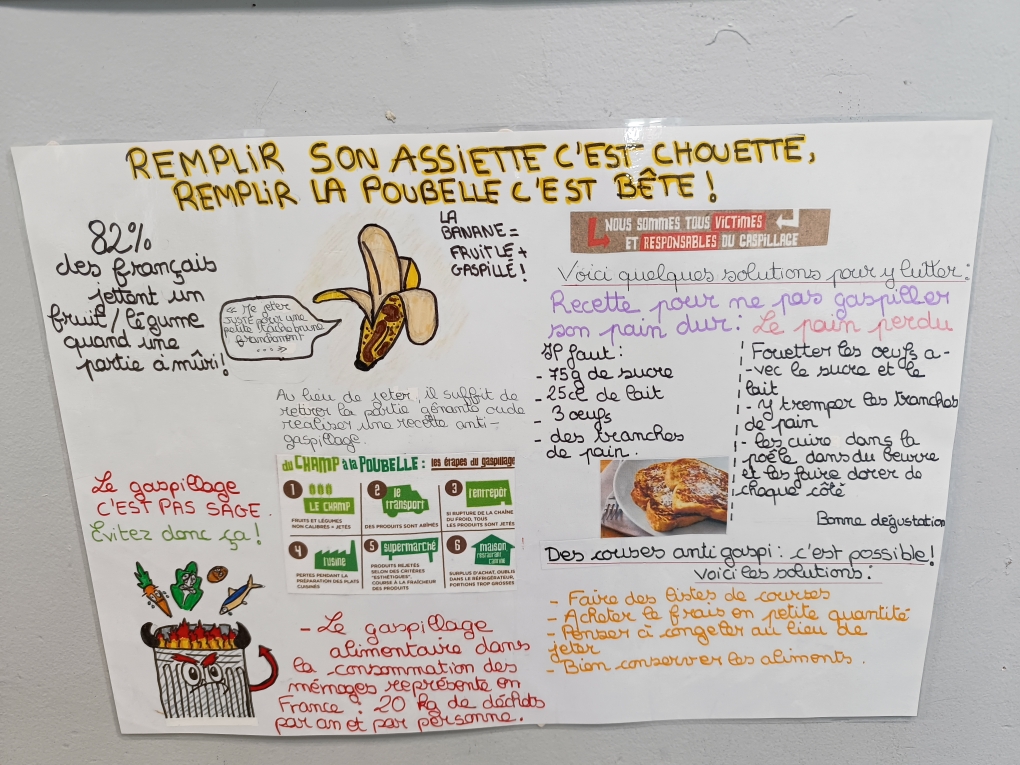 REMPLIR SON ASSIETTE C'EST CHOUETTE,
REMPLIR LA POUBELLE C'EST BÊTE !
82%
des français
jettent un
fruit/légume
quand une
partie a mûri!
« Me jeter
juste pour une
petite tâche brune
franchement
...»
LA
BANANE =
FRUIT LE +
GASPILLÉ !
Au lieu de jeter, il suffit de
retirer la partie gênante ou de
réaliser une recette anti-
gaspillage.
du CHAMP à la POUBELLE : les étapes du gaspillage
1
LE CHAMP
FRUITS ET LÉGUMES
NON CALIBRÉS = JETÉS
2
le
transport
DES PRODUITS SONT ABÎMÉS
3
l'entrepôt
SI RUPTURE DE LA CHAÎNE
DU FROID, TOUS
LES PRODUITS SONT JETÉS
4
l'usine
PERTES PENDANT LA
PRÉPARATION DES PLATS
CUISINÉS
5
supermarché
PRODUITS REJETÉS
SELON DES CRITÈRES
"ESTHÉTIQUES".
COURSE À LA FRAÎCHEUR
DES PRODUITS
6
maison
restaurant
cantine
SURPLUS D'ACHAT, OUBLIS
DANS LE RÉFRIGÉRATEUR,
PORTIONS TROP GROSSES
Le gaspillage
C'EST PAS SAGE.
Evitez donc ça !
- Le gaspillage
alimentaire dans
la consommation des
ménages représente en
France : 20 kg de déchets
par an et par personne.
NOUS SOMMES TOUS VICTIMES
ET RESPONSABLES DU GASPILLAGE
Voici quelques solutions pour y lutter :
Recette pour ne pas gaspiller
son pain dur : Le pain perdu
Il faut :
- 75g de sucre
- 25cl de lait
- 3 oeufs
- des tranches
de pain.
Fouetter les oeufs a-
-vec le sucre et le
lait
- y tremper les tranches
de pain
- les cuire dans la
poêle dans du beurre
et les faire dorer de
chaque côté
Bonne dégustation
Des courses anti gaspi : c'est possible !
Voici les solutions :
- Faire des listes de courses
- Acheter le frais en petite quantité
- Penser à congeler au lieu de
jeter
- Bien conserver les aliments.